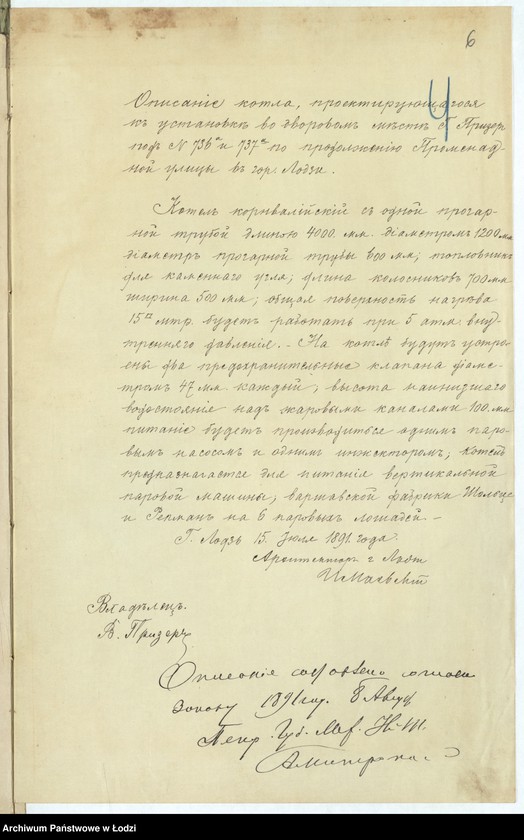 6
Описаніе котла, проектирующагося
къ установкѣ во дворовомъ мѣстѣ Г. Призер
подъ N 736ª и 737ª по продолженію Променад-
ной улицы въ гор. Лодзи.
Котелъ корнвалійскій съ одной прогар-
ной трубой длиною 4000 мм. діаметромъ 1200 мм.
діаметръ прогарной трубы 600 мм; топливникъ
для каменнаго угля; длина колосниковъ 700 мм
ширина 500 мм; общая поверхность нагрѣва
15 мтр. будетъ работать при 5 атм. внут-
тренняго давленія. - На котлѣ будутъ устро-
ены два предохранительные клапана діаме-
тромъ 47 мм. каждый; высота наинизшаго
водостоянія надъ жаровыми каналами 100 мм.
питаніе будетъ производиться однимъ паро-
вымъ насосомъ и однимъ инжекторомъ; котелъ
предназнагается для питанія вертикальной
паровой машины, варшавской фабрики Шольце
и Репманъ на 6 паровыхъ лошадей. -
Г. Лодзь 15. Іюля 1891 года.
Архитекторъ г. Лодзи
Владѣлецъ.
В. Призеръ
Описаніе согласно
закону 1891 год. 8 Авгус
Губ. Мех.
Archiwum Państwowe w Łodzi